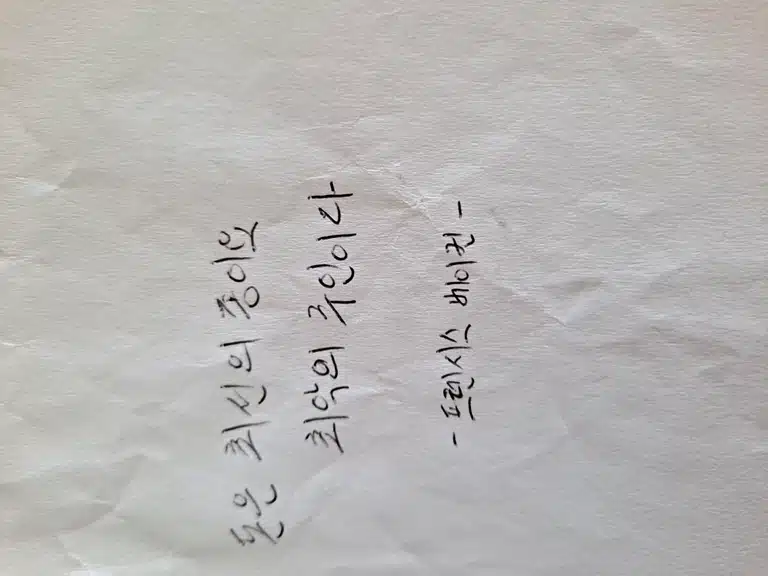 돈은 최선의 종이요
최악의 주인이라
- 프랜시스 베이컨 -